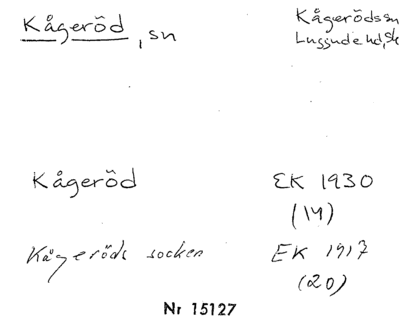 Kågeröd, sn
Kågerödssn
Luggude hd, Sk
Kågeröd EK 1930
(14)
Kågeröds socken EK 1917
(20)
Nr 15127